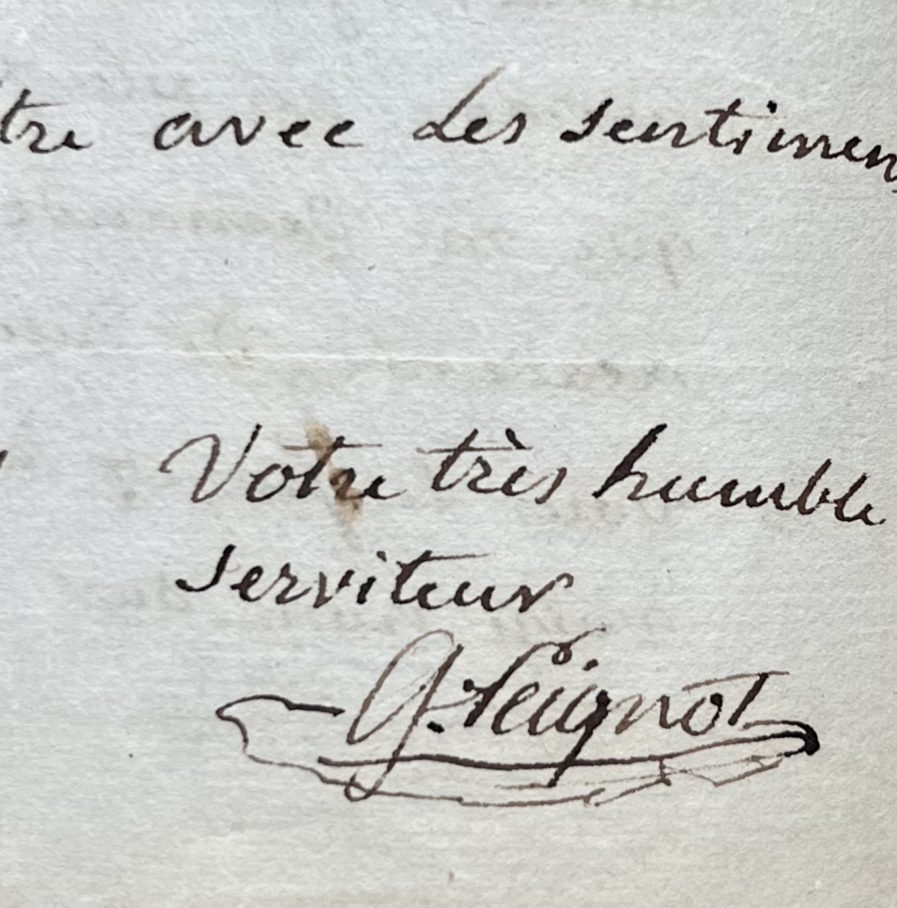 tre avec les sentimens
Votre très humble
serviteur
G. Peignot